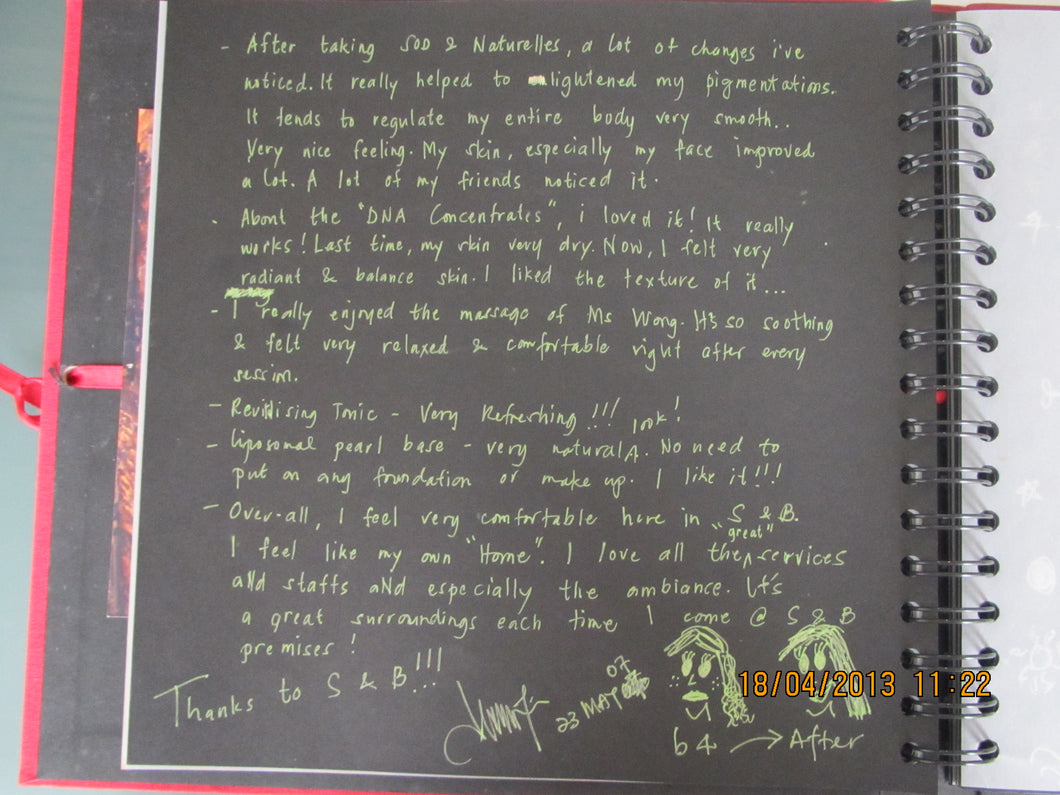 - After taking SOD & Naturelles, a lot of changes i've
noticed. It really helped to lightened my pigmentations.
It tends to regulate my entire body very smooth..
Very nice feeling. My skin, especially my face improved
a lot. A lot of my friends noticed it.
- About the "DNA Concentrates", i loved it! It really
works! Last time, my skin very dry. Now, I felt very
radiant & balance skin. I liked the texture of it...
- I really enjoyed the massage of Ms Wong. It's so soothing
& felt very relaxed & comfortable right after every
session.
- Revitilising Tonic - Very Refreshing!!!
look!
- liposomal pearl base - very natural. No need to
put on any foundation or make up. I like it!!!
- Over-all, I feel very comfortable here in S & B.
"great"
I feel like my own "Home". I love all the services
and staffs and especially the ambiance. It's
a great surroundings each time I come @ S & B
premises!
Thanks to S & B!!!
23 MAY 07
b4 → After
18/04/2013 11:22